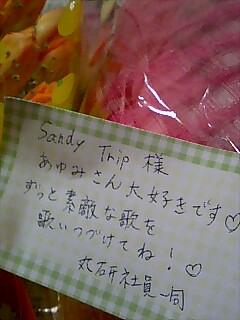 Sandy Trip 様
あゆみさん大好きです♡
ずっと素敵な歌を
歌いつづけてね！♡
丸研社員一同